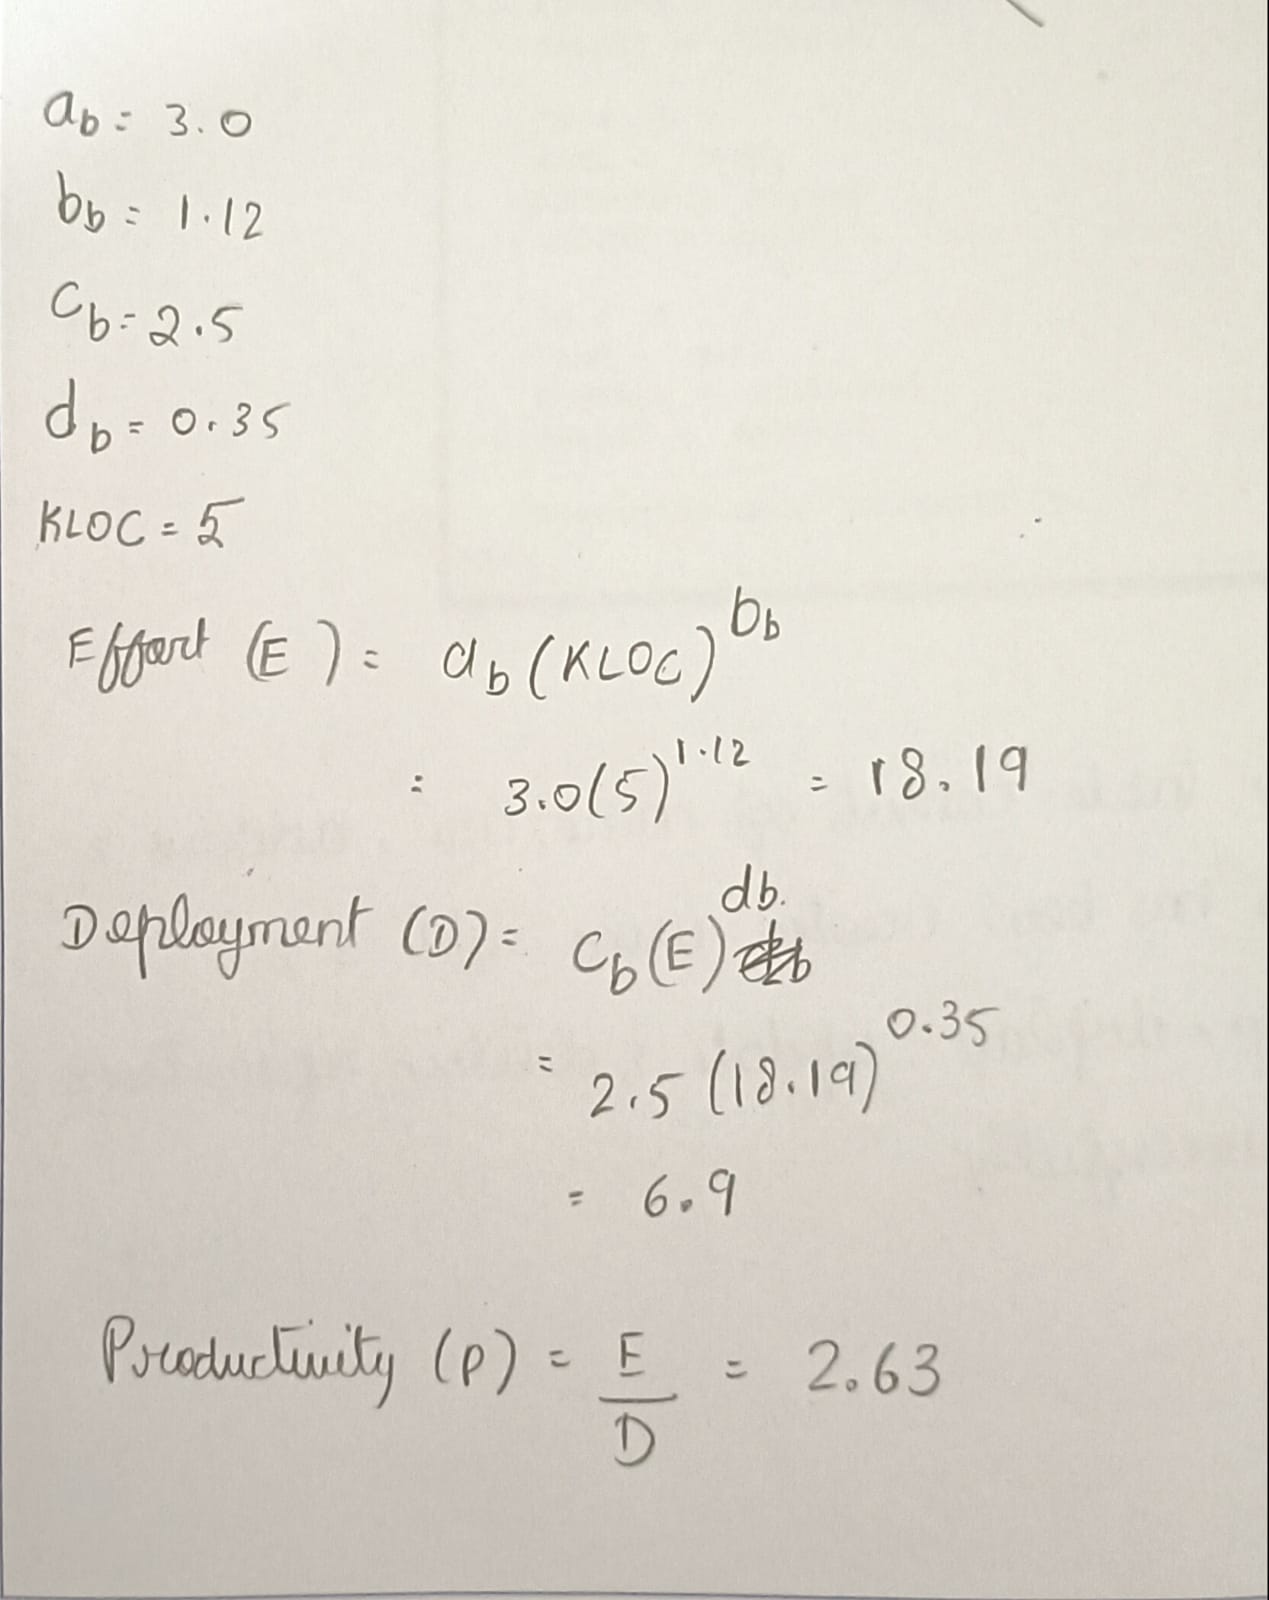 ab = 3.0
bb = 1.12
Cb = 2.5
db = 0.35
KLOC = 5
Effort (E) = ab (KLOC)^bb
= 3.0(5)^1.12 = 18.19
Deployment (D) = Cb (E)^db.
= 2.5 (18.19)^0.35
= 6.9
Productivity (P) = E/D = 2.63